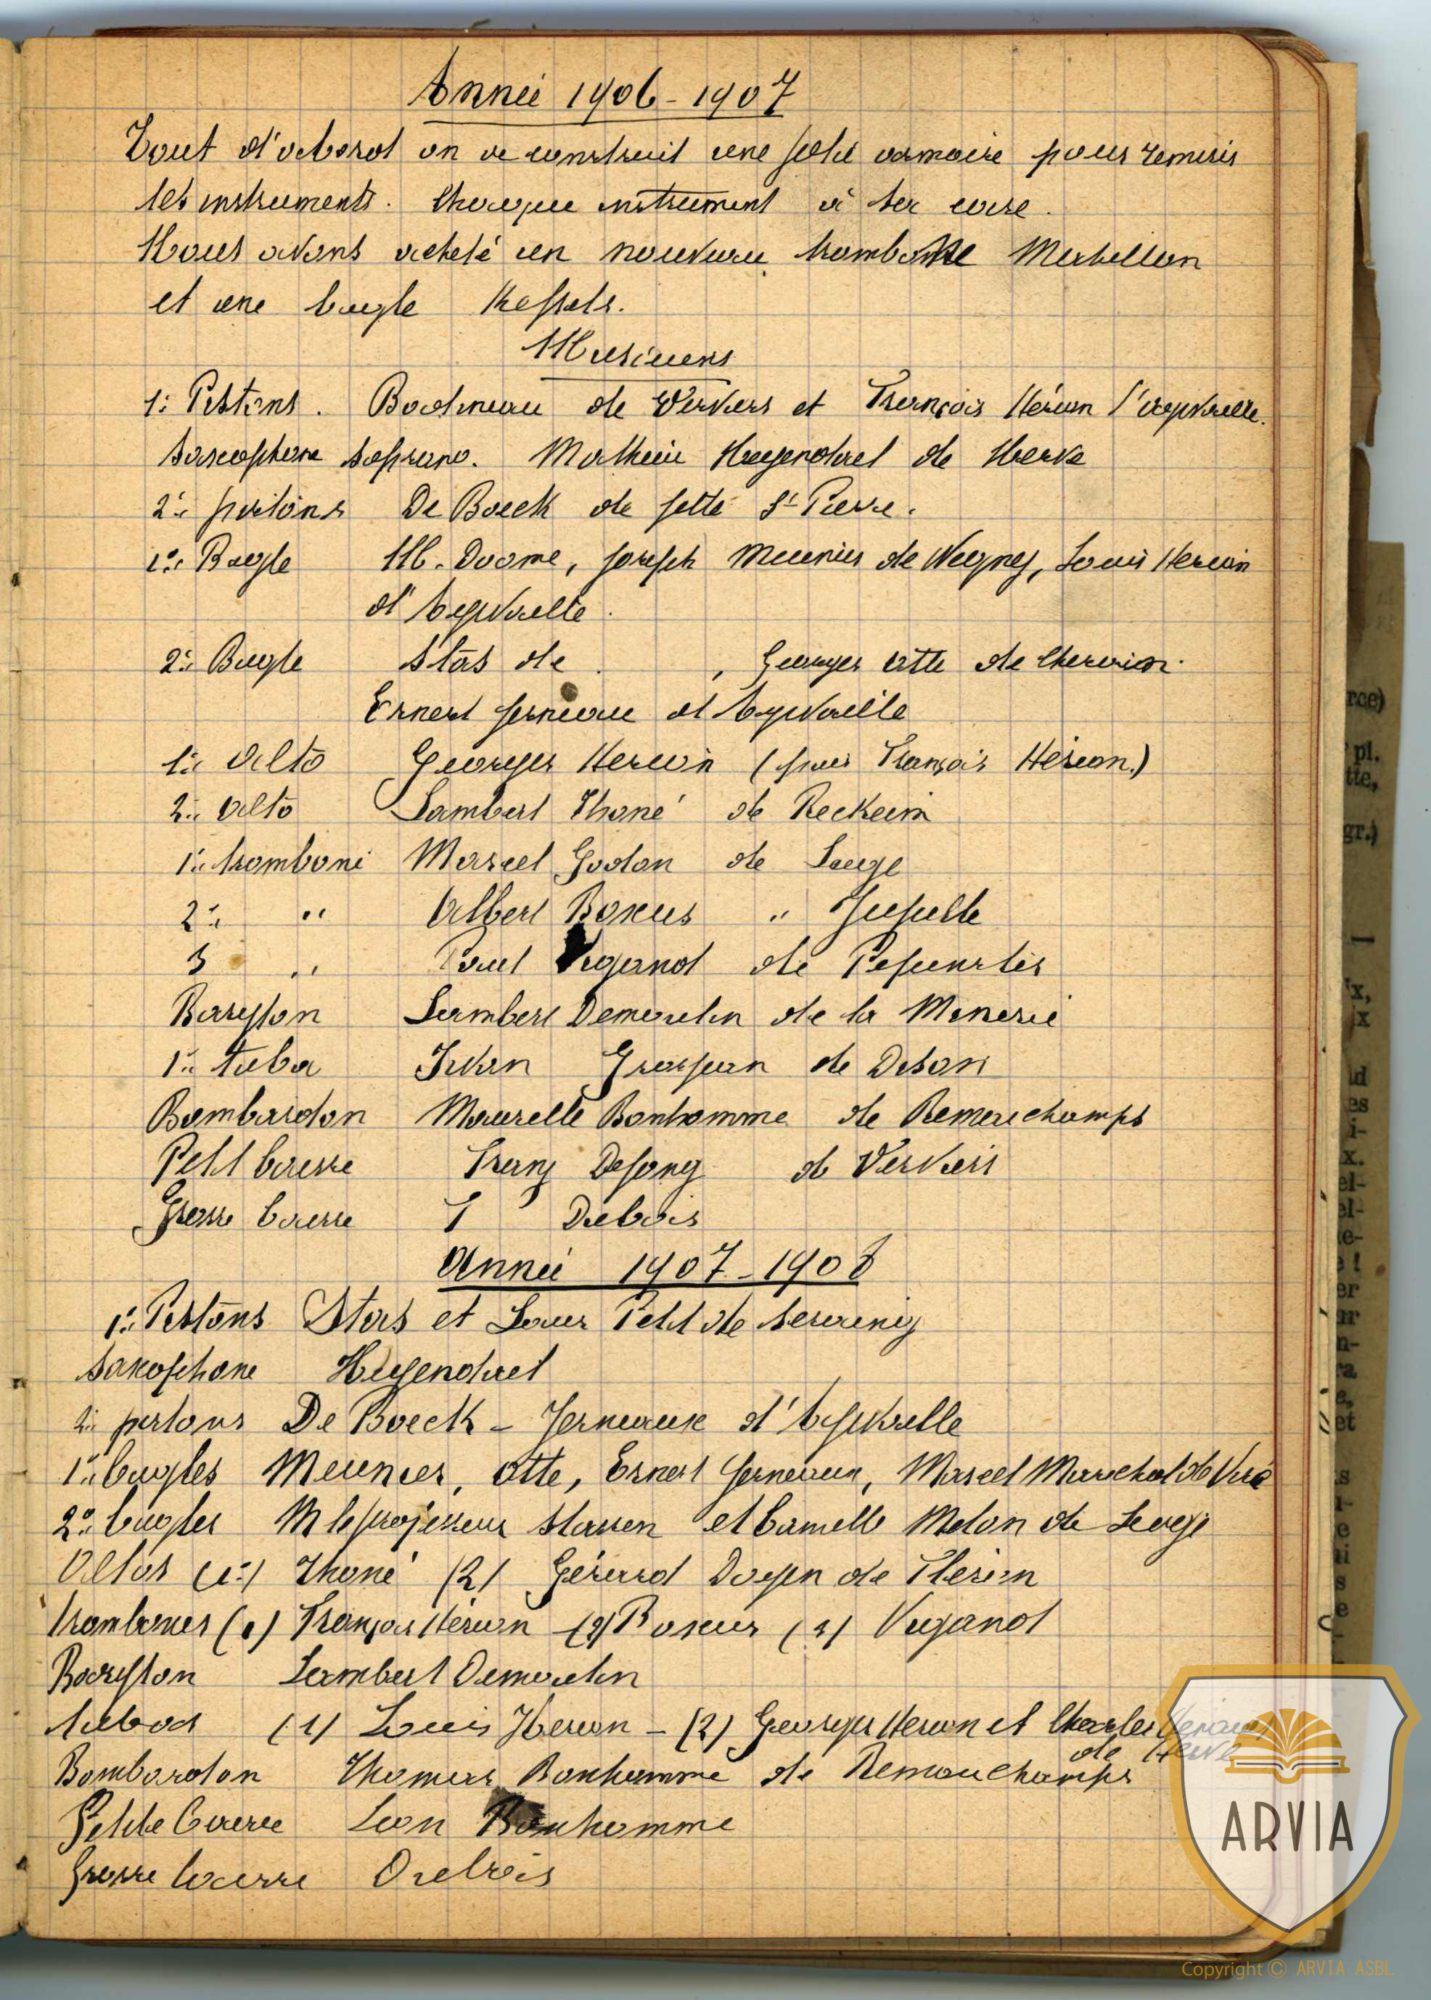 Année 1906-1907
Tout d'abord on a construit une jolie armoire pour remiser
les instruments. Chaque instrument a sa case.
Nous avons acheté un nouveau trombone Mahillon
et une bugle Kessels.
Musiciens
1er Pistons. Bodineau de Verviers et François Hérion d'Aywaille.
Saxophone soprano. Mathieu Hugendael de Herve
2e pistons De Boeck de Jette St Pierre.
1er Bugle M. Doome, Joseph Meunier de Wegnez, Louis Herion
d'Aywaille.
2e Bugle Stas de , Georges Otte de
Ernest Jerneau d'Aywaille
1er Alto Georges Herion (puis François Hérion.)
2e Alto Lambert Thoné de Reckeim
1er trombone Marcel Godon de Liège
2e " Albert Boxus " Jupille
3 " Paul Viganot de Pepinster
Baryton Lambert Demoulin de la Minerie
1er tuba Ivan Grosjean de Dison
Bombardon Maurelle Bonhomme de Remouchamps
Petit caisse Franz Dejong de Verviers
Grosse caisse J Dubois
Année 1907-1908
1er Pistons Stas et Louis Petit de Seraing
Saxophone Hugendael
2e pistons De Boeck - Jerneaux d'Aywaille
1er bugles Meunier, Otte, Ernest Jerneaux, Marcel Marechal de Visé
2e bugles M le professeur Stassen et Camille Melon de Liège
Altos (1er) Thoné (2) Gérard Doyen de Fléron
Trombones (1) François Hérion (2) Boxus (3) Viganot
Baryton Lambert Demoulin
Tubas (1) Louis Herion - (2) Georges Herion et Charles
de Herve
Bombardon Thomas Bonhomme de Remouchamps
Petite Caisse Leon Bonhomme
Grosse caisse Dubois
ARVIA
Copyright © ARVIA ASBL